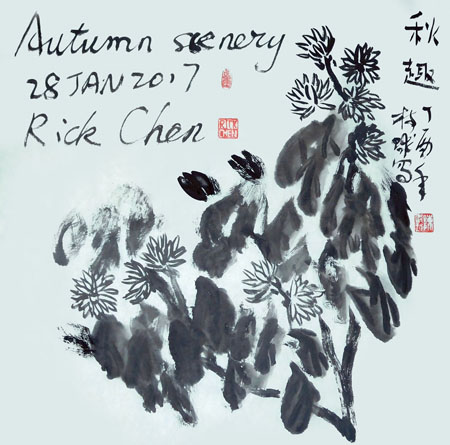 Autumn scenery
28 JAN 2017
Rick Chen
RICK
CHEN
秋趣
丁酉年
写